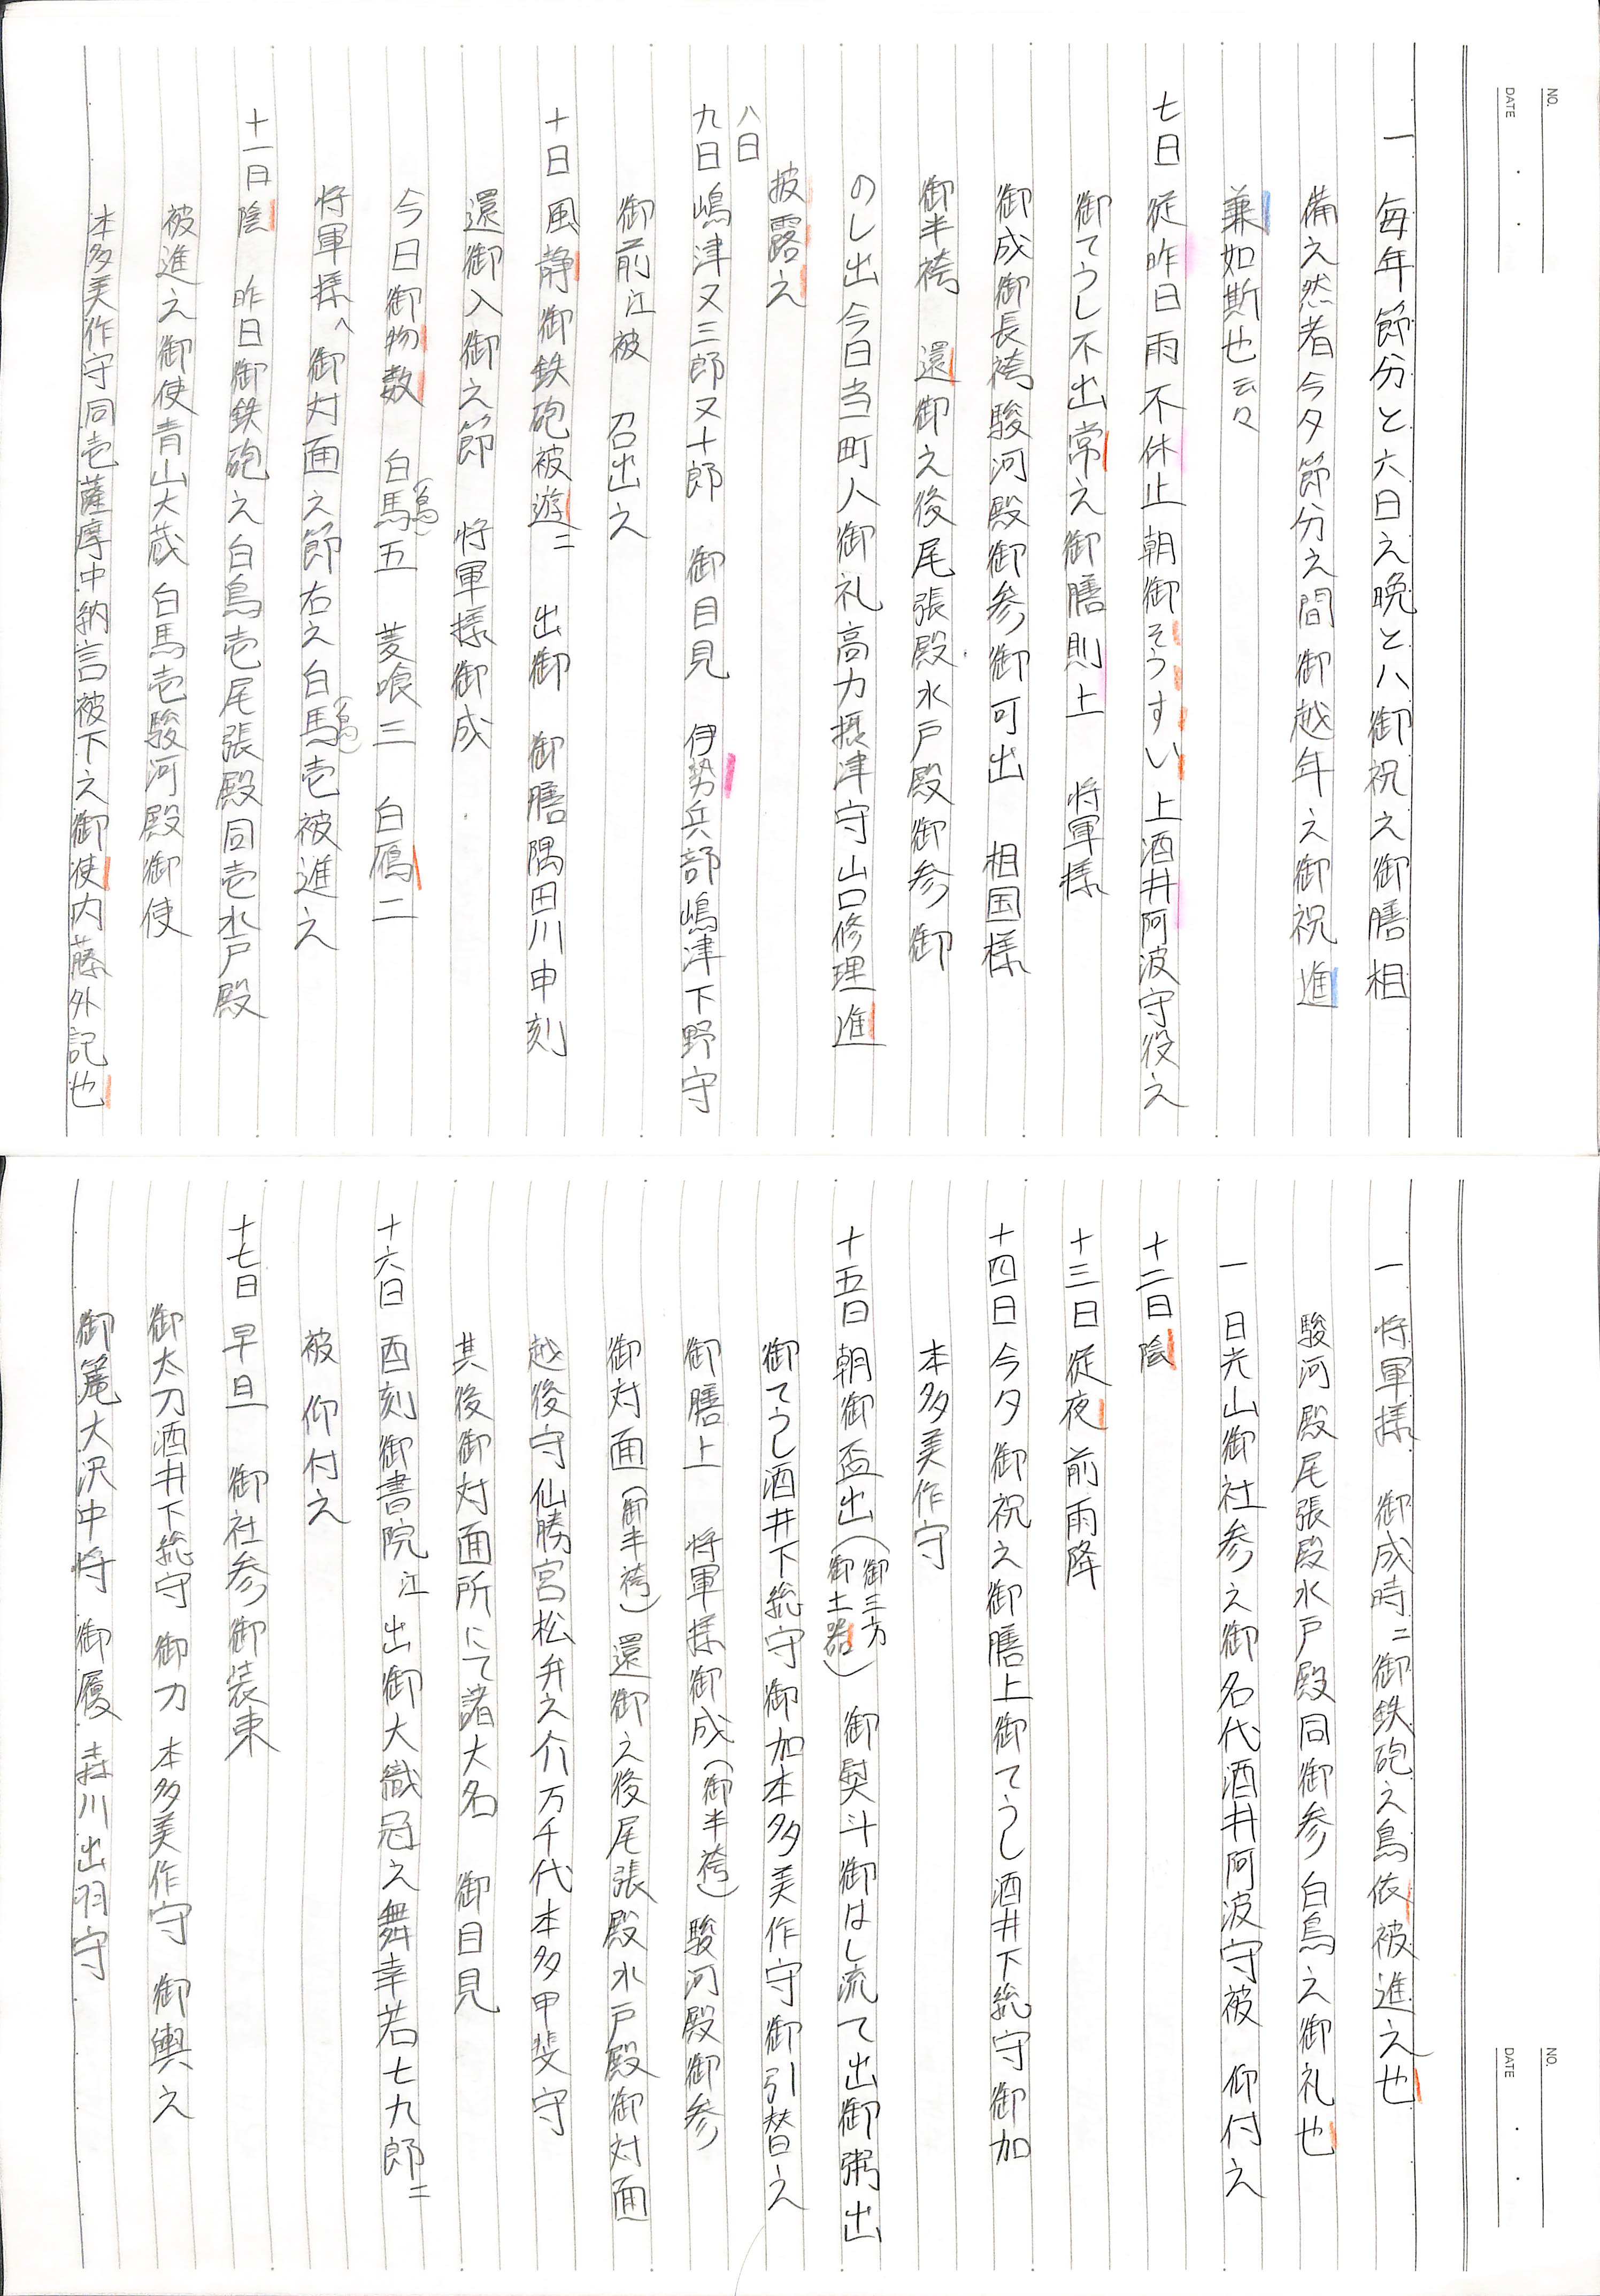 NO.
DATE
一 毎年節分と六日之晩と八御祝之御膳相
備之然者今夕節分之間御越年之御祝進
兼如斯也云々
七日 従昨日雨不休止朝御そうすい上酒井阿波守役之
御てうし不出常之御膳則上 将軍様
御成御長袴駿河殿御参御可出 相国様
御半袴 還御之後尾張殿水戸殿御参御
のし出今日当町人御礼高力摂津守山口修理進
披露之
八日
九日嶋津又三郎又十郎 御目見 伊勢兵部嶋津下野守
御前江被 召出之
十日風静御鉄砲被遊ニ 出御 御膳隅田川申刻
還御入御之節 将軍様御成
今日御物数 白馬(鳥)五 菱喰三 白鴈二
将軍様へ御対面之節右之白馬(鳥)壱被進之
十一日陰 昨日御鉄砲之白鳥壱尾張殿同壱水戸殿
被進之御使青山大蔵 白馬壱駿河殿御使
本多美作守同壱薩摩中納言被下之御使内藤外記也
NO.
DATE
一 将軍様 御成時ニ御鉄砲之鳥依被進之也
駿河殿尾張殿水戸殿同御参白鳥之御礼也
一 日光山御社参之御名代酒井阿波守被 仰付之
十二日陰
十三日従夜前雨降
十四日今夕御祝之御膳上御てうし酒井下総守御加
本多美作守
十五日朝御盃出(御三方御土器) 御熨斗御はし流て出御粥出
御てうし酒井下総守御加本多美作守御引替之
御膳上 将軍様御成(御半袴)駿河殿御参
御対面(御半袴)還御之後尾張殿水戸殿御対面
越後守仙勝宮松弁之介万千代本多甲斐守
其後御対面所にて諸大名 御目見
十六日 酉刻御書院江出御大織冠之舞幸若七九郎ニ
被 仰付之
十七日 早旦 御社参御装束
御太刀酒井下総守 御刀 本多美作守 御輿之
御簾大沢中将 御履 森川出羽守